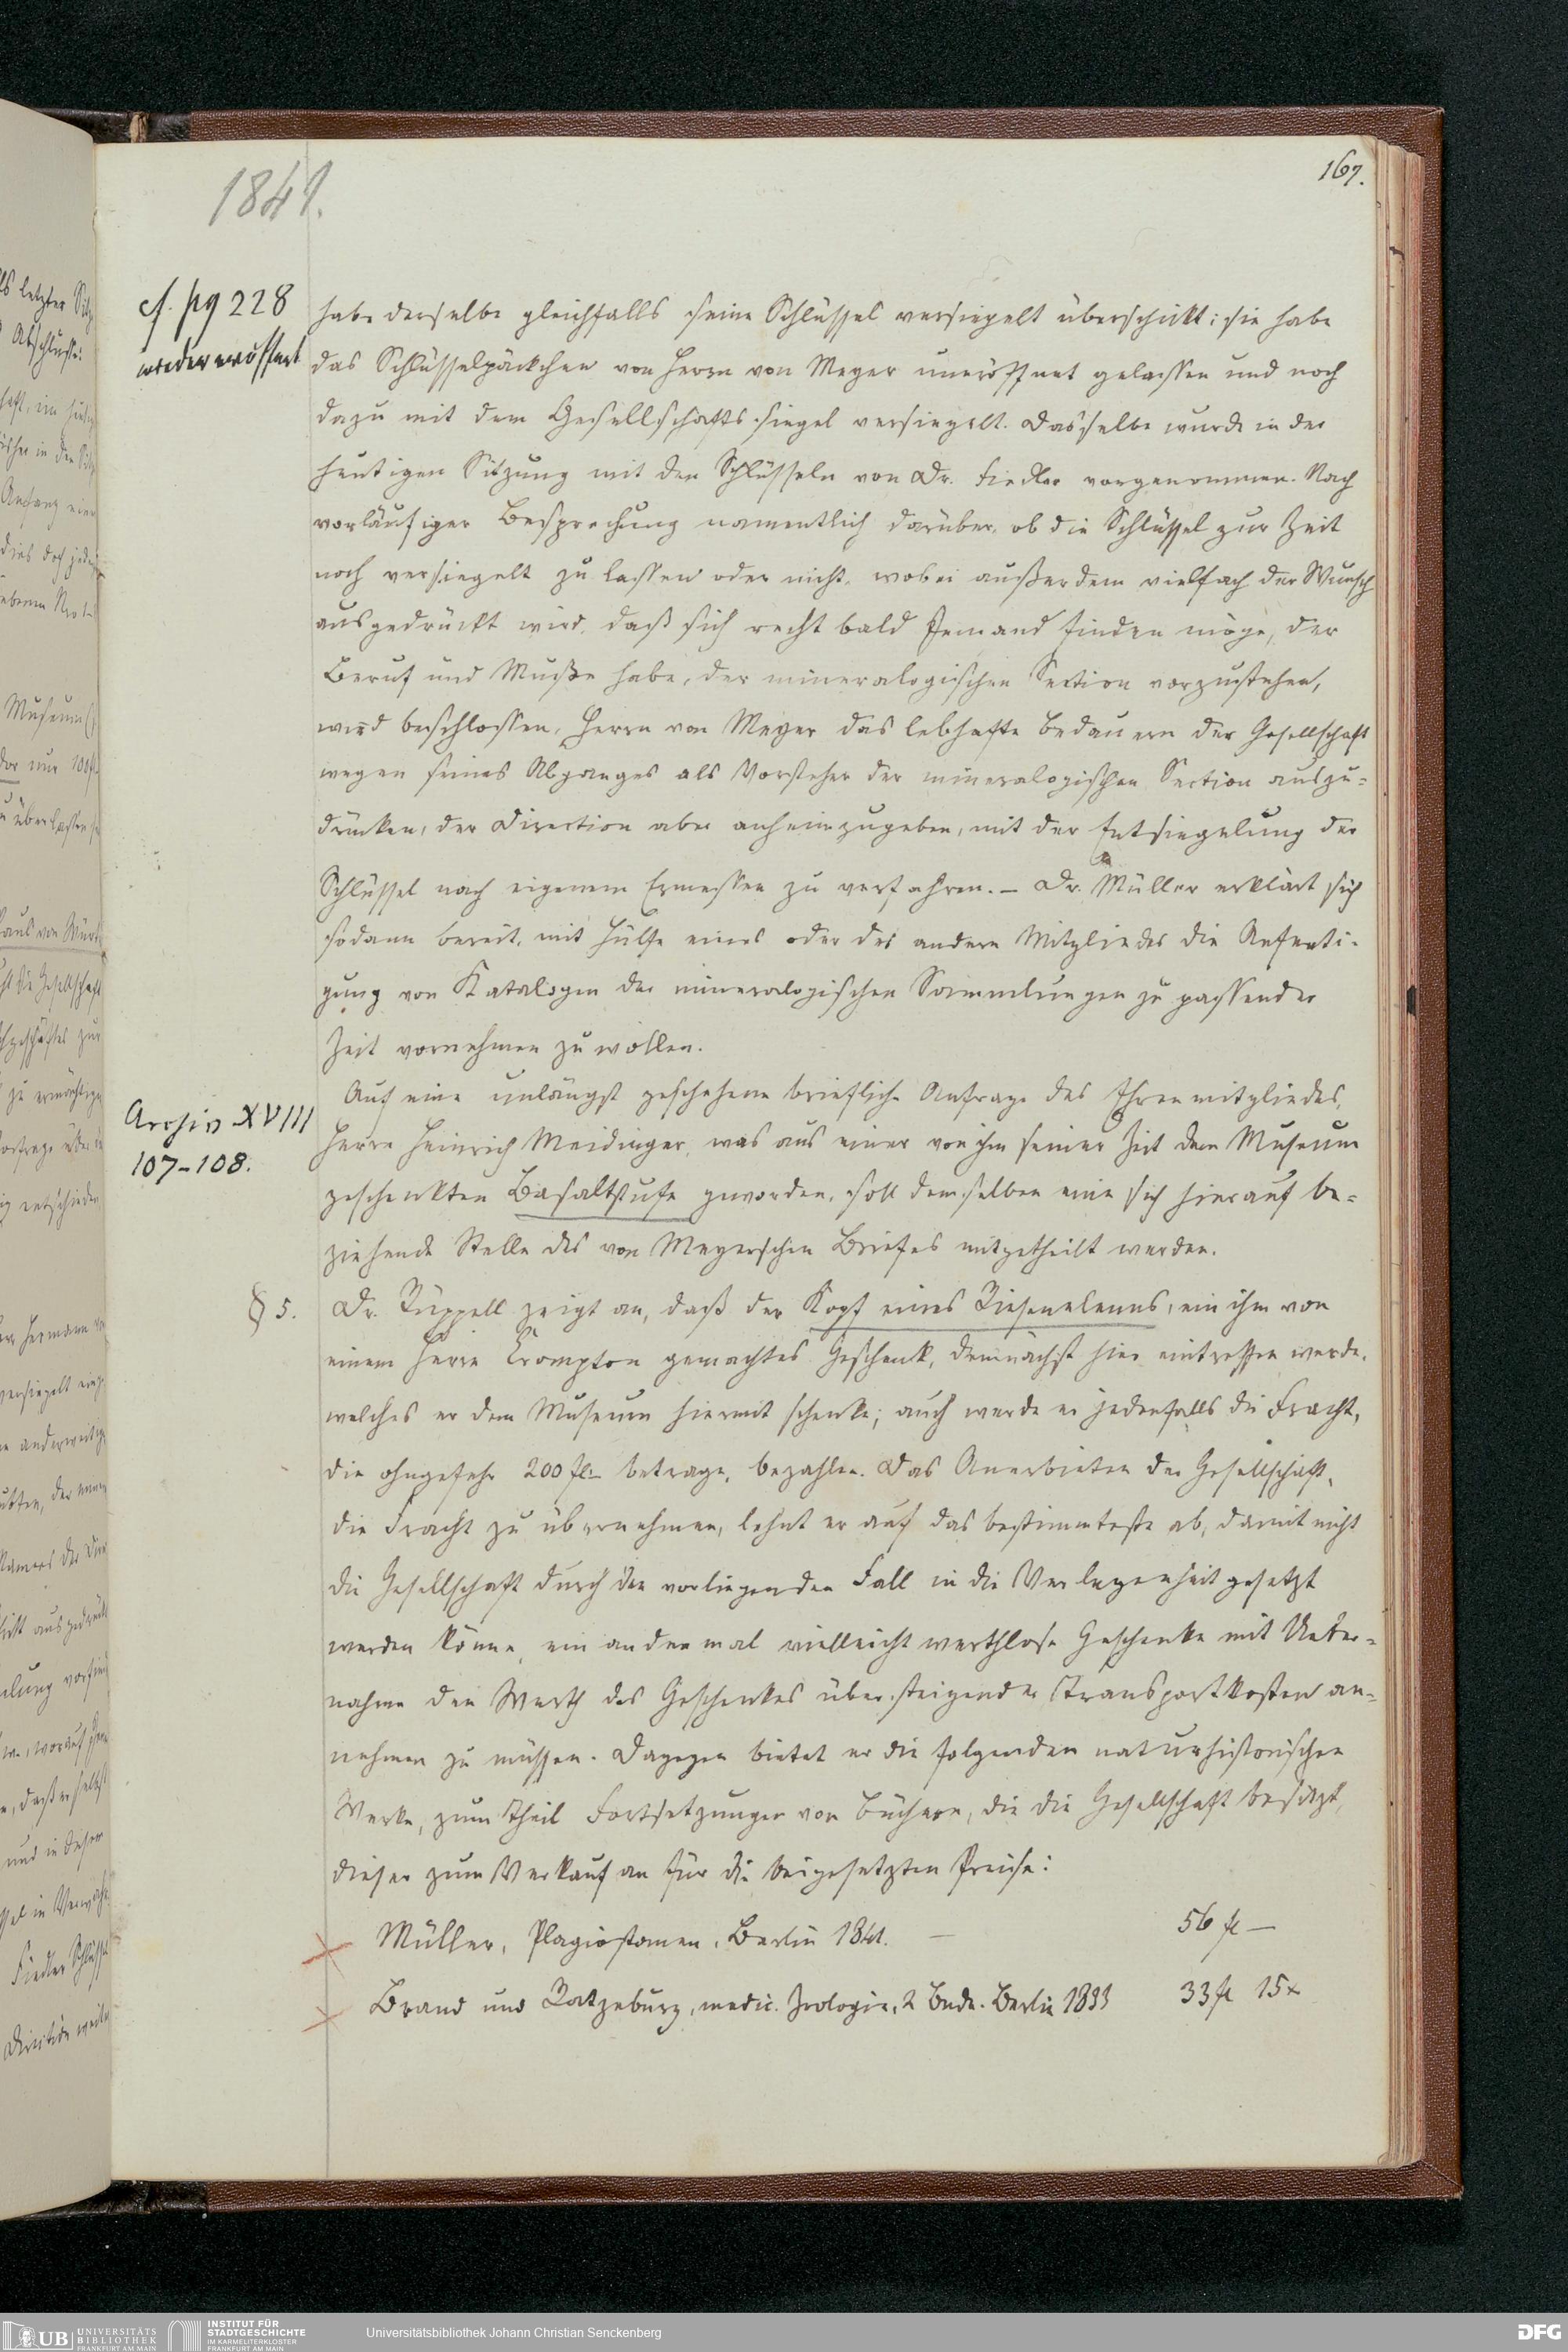 167.
1841.
cf. pg 228
wiedereröffnet
habe derselbe gleichfalls seine Schlüssel versiegelt überschickt; sie habe
das Schlüsselpäckchen von Herrn von Meyer uneröffnet gelassen und noch
dazu mit dem Gesellschaftssiegel versiegelt. Dasselbe wurde in der
heutigen Sitzung mit den Schlüsseln von Dr. Fiedler vorgenommen. Nach
vorläufiger Besprechung namentlich darüber, ob die Schlüssel zur Zeit
noch versiegelt zu lassen oder nicht, wobei außerdem vielfach der Wunsch
ausgedrückt wird, daß sich recht bald Jemand finden möge, der
Beruf und Muße habe, der mineralogischen Section vorzustehen,
wird beschlossen, Herrn von Meyer das lebhafte Bedauern der Gesellschaft
wegen seines Abganges als Vorsteher der mineralogischen Section auszu-
drücken, der Direction aber anheimzugeben, mit der Entsiegelung der
Schlüssel nach eigenem Ermessen zu verfahren. – Dr. Müller erklärt sich
sodann bereit, mit Hülfe eines oder des andern Mitgliedes die Anferti-
gung von Katalogen der mineralogischen Sammlungen zu passender
Zeit vornehmen zu wollen.
Archiv XVIII
107-108.
Auf eine unlängst geschehene briefliche Anfrage des Ehrenmitgliedes,
Herrn Heinrich Meidinger, was aus einer von ihm seiner Zeit dem Museum
geschenkten Basaltstufe geworden, soll demselben eine sich hierauf be-
ziehende Stelle des von Meyerschen Briefes mitgetheilt werden.
§ 5. Dr. Rüppell zeigt an, daß der Kopf eines Riesenelenns, ein ihm von
einem Herrn Crompton gemachtes Geschenk, demnächst hier eintreffen werde,
welches er dem Museum hiermit schenke; auch werde er jedenfalls die Fracht,
die ohngefehr 200 fl– betrage, bezahlen. Das Anerbieten der Gesellschaft,
die Fracht zu übernehmen, lehnt er auf das bestimmteste ab, damit nicht
die Gesellschaft durch den vorliegenden Fall in die Verlegenheit gesetzt
werden könne, ein andermal vielleicht werthlose Geschenke mit Ueber-
nahme den Werth des Geschenkes übersteigender Transportkosten an-
nehmen zu müssen. Dagegen bietet er die folgenden naturhistorischen
Werke, zum Theil Fortsetzungen von Büchern, die die Gesellschaft besitzt,
dieser zum Verkauf an für die beigesetzten Preise:
Müller, Plagiostomen, Berlin 1841. – 56 fl –
Brand und Ratzeburg, medic. Zoologie, 2 Bnde. Berlin 1833 33 fl 15x
UB UNIVERSITÄTS
BIBLIOTHEK
FRANKFURT AM MAIN
INSTITUT FÜR
STADTGESCHICHTE
IM KARMELITERKLOSTER
FRANKFURT AM MAIN
Universitätsbibliothek Johann Christian Senckenberg
DFG